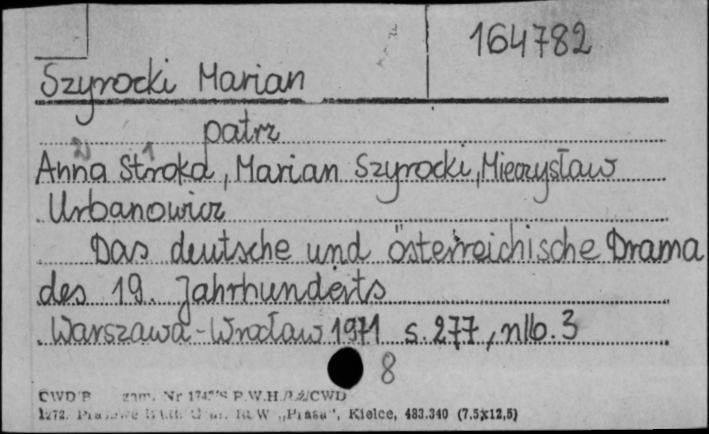 164782
Szyrocki Marian
patrz
Anna Stroka, Marian Szyrocki, Mieczysław
Urbanowicz
Das deutsche und österreichische Drama
des 19. Jahrhunderts
Warszawa-Wrocław 1971 s. 277, nlb. 3
8
CWD zam. Nr P.W.H. CWD
„Prasa", Kielce, 483.340 (7,5x12,5)